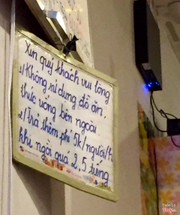 Xin quý khách vui lòng
1/ Không sử dụng đồ ăn
thức uống bên ngoài
2/ Trả thêm phí 5k/người/h
khi ngồi quá 2,5 tiếng